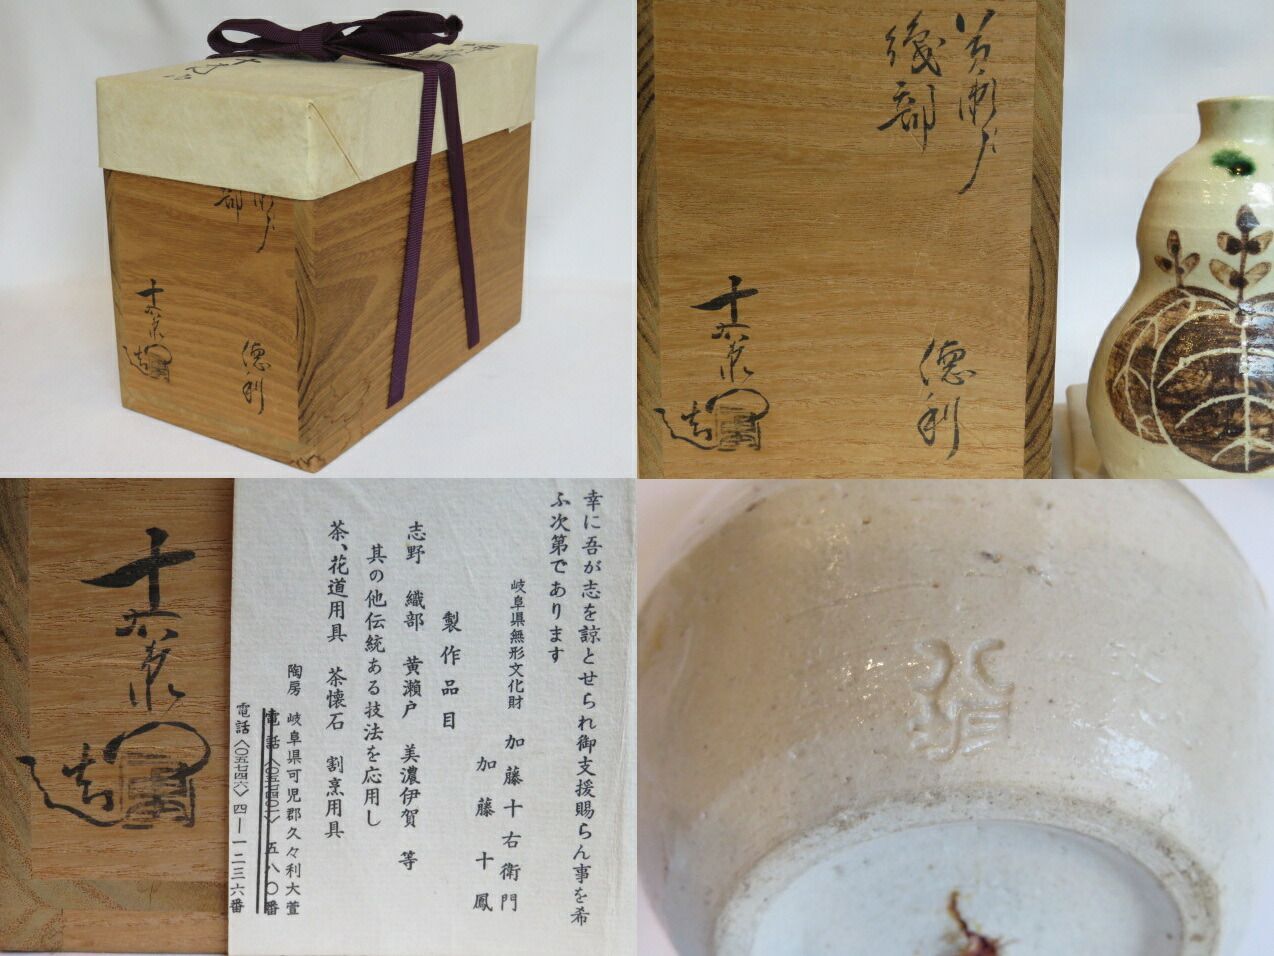 部
瀬戸
徳利
十右衛門
造
黄瀬戸
織部
徳利
十右衛門
造
十右衛門
造
幸に吾が志を諒とせられ御支援賜らん事を希
ふ次第であります
岐阜県無形文化財 加藤十右衛門
加藤十鳳
製作品目
志野 織部 黄瀬戸 美濃伊賀 等
其の他伝統ある技法を応用し
茶、花道用具 茶懐石 割烹用具
陶房 岐阜県可児郡久々利大萱
電話〈〇五七四六〉四—一二三六番